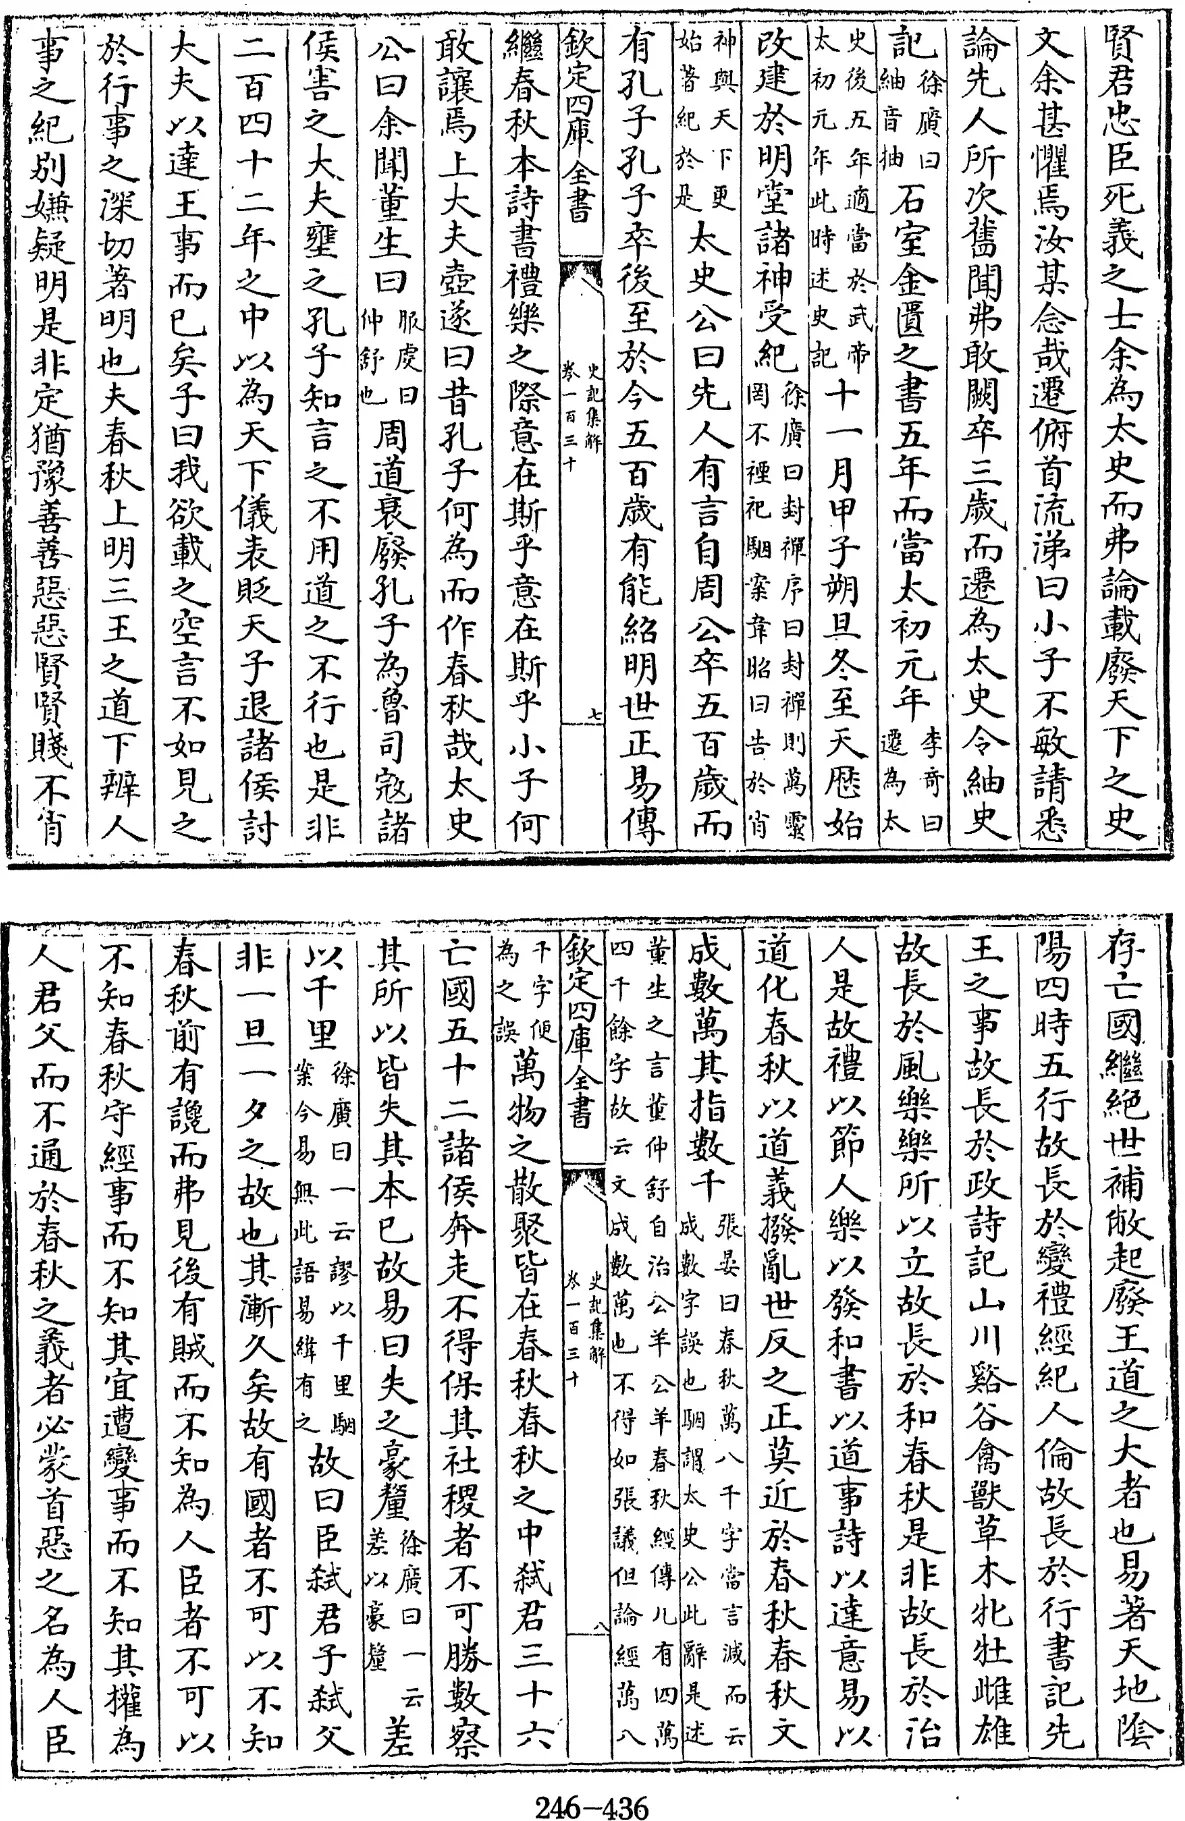 賢君忠臣死義之士余為太史而弗論載廢天下之史
文余甚懼焉汝其念哉遷俯首流涕曰小子不敏請悉
論先人所次舊聞弗敢闕卒三歲而遷為太史令紬史
記徐廣曰紬音抽石室金匱之書五年而當太初元年李奇曰遷為太
史後五年適當於武帝太初元年此時述史記十一月甲子朔旦冬至天厯始
改建於明堂諸神受紀徐廣曰封禪序曰封禪則萬靈罔不禋祀駰案韋昭曰告於百
神與天下更始著紀於是太史公曰先人有言自周公卒五百歲而
有孔子孔子卒後至於今五百歲有能紹明世正易傳
欽定四庫全書 史記集解卷一百三十 七
繼春秋本詩書禮樂之際意在斯乎意在斯乎小子何
敢讓焉上大夫壺遂曰昔孔子何為而作春秋哉太史
公曰余聞董生曰服虔曰仲舒也周道衰廢孔子為魯司寇諸
侯害之大夫壅之孔子知言之不用道之不行也是非
二百四十二年之中以為天下儀表貶天子退諸侯討
大夫以達王事而已矣子曰我欲載之空言不如見之
於行事之深切著明也夫春秋上明三王之道下辨人
事之紀別嫌疑明是非定猶豫善善惡惡賢賢賤不肖
存亡國繼絕世補敝起廢王道之大者也易著天地陰
陽四時五行故長於變禮經紀人倫故長於行書記先
王之事故長於政詩記山川谿谷禽獸草木牝牡雌雄
故長於風樂樂所以立故長於和春秋是非故長於治
人是故禮以節人樂以發和書以道事詩以達意易以
道化春秋以道義撥亂世反之正莫近於春秋春秋文
成數萬其指數千張晏曰春秋萬八千字當言減而云成數字誤也駰謂太史公此辭是述
董生之言董仲舒自治公羊公羊春秋經傳凡有四萬四千餘字故云文成數萬也不得如張議但論經萬八
千字便為之誤萬物之散聚皆在春秋春秋之中弒君三十六
欽定四庫全書 史記集解卷一百三十 八
亡國五十二諸侯奔走不得保其社稷者不可勝數察
其所以皆失其本已故易曰失之豪釐徐廣曰一云差以豪釐差
以千里徐廣曰一云謬以千里駰案今易無此語易緯有之故曰臣弒君子弒父
非一旦一夕之故也其漸久矣故有國者不可以不知
春秋前有讒而弗見後有賊而不知為人臣者不可以
不知春秋守經事而不知其宜遭變事而不知其權為
人君父而不通於春秋之義者必蒙首惡之名為人臣
246-436